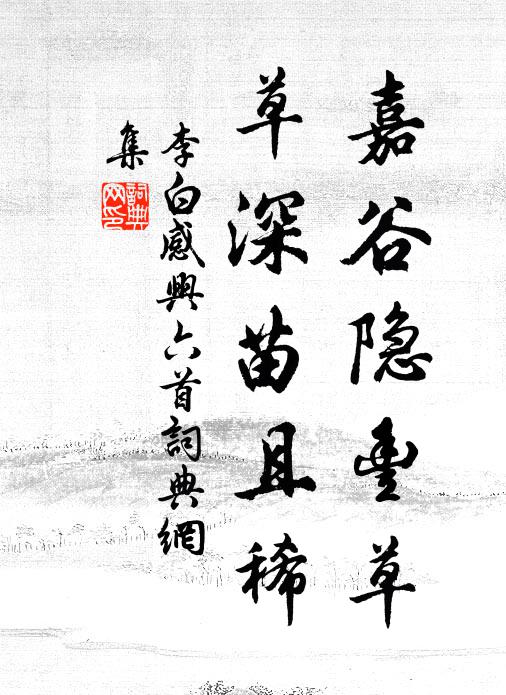 嘉谷隐豊草
草深苗且稀
李白感興六首詞典網
集
詞典
网印